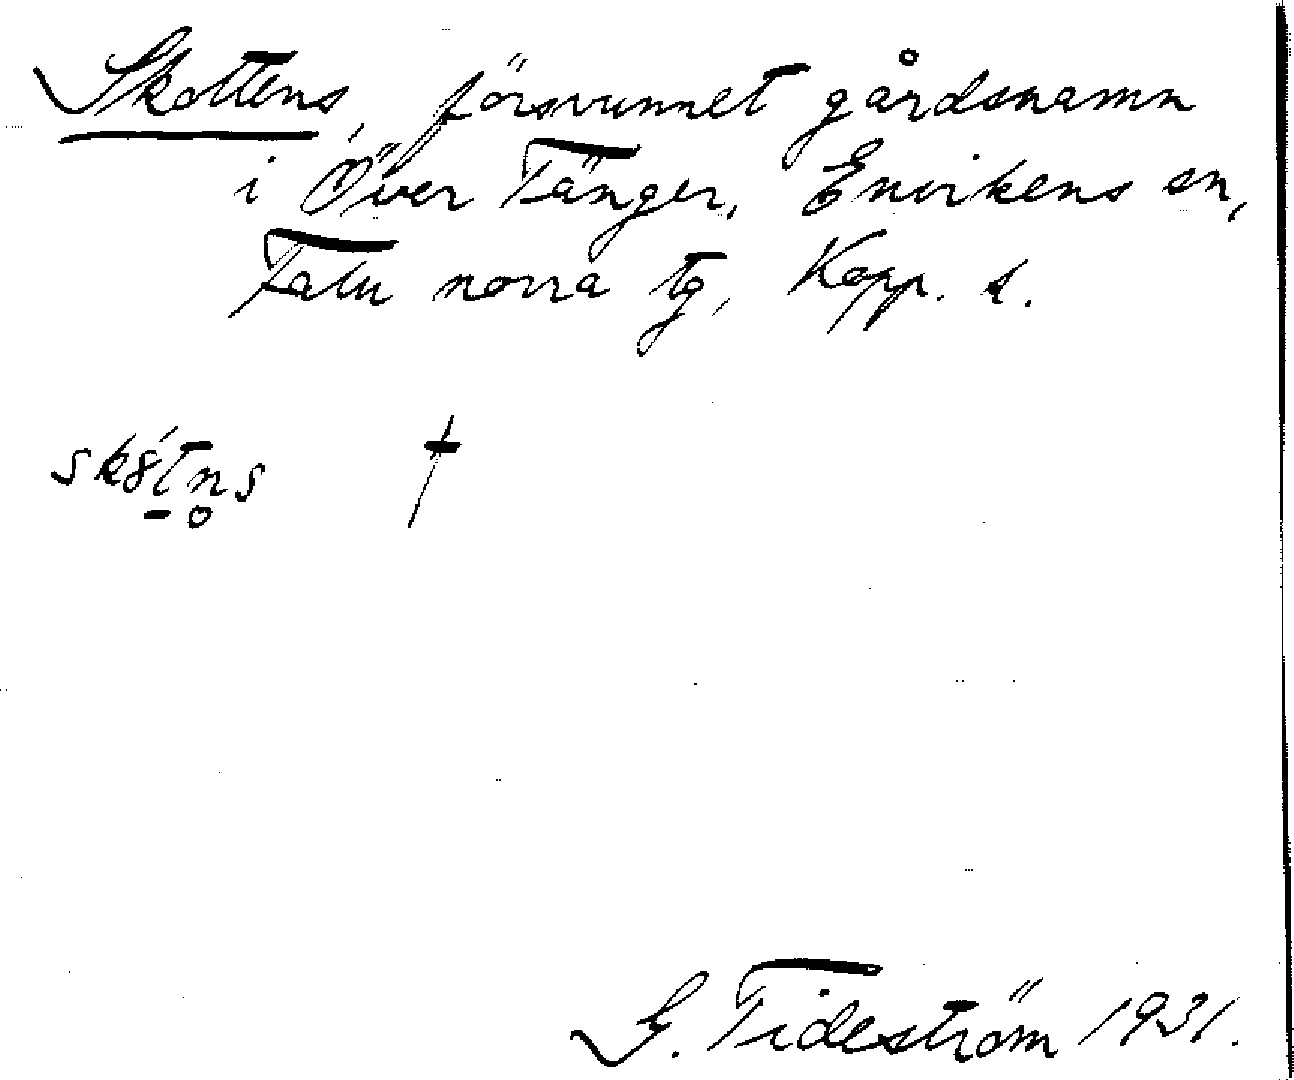 Skottens, försvunnet gårdsnamn
i Över Tänger, Envikens sn,
Falu norra tg, Kopp. l.
sk8́t̠n̥s †
G. Tideström 1931.